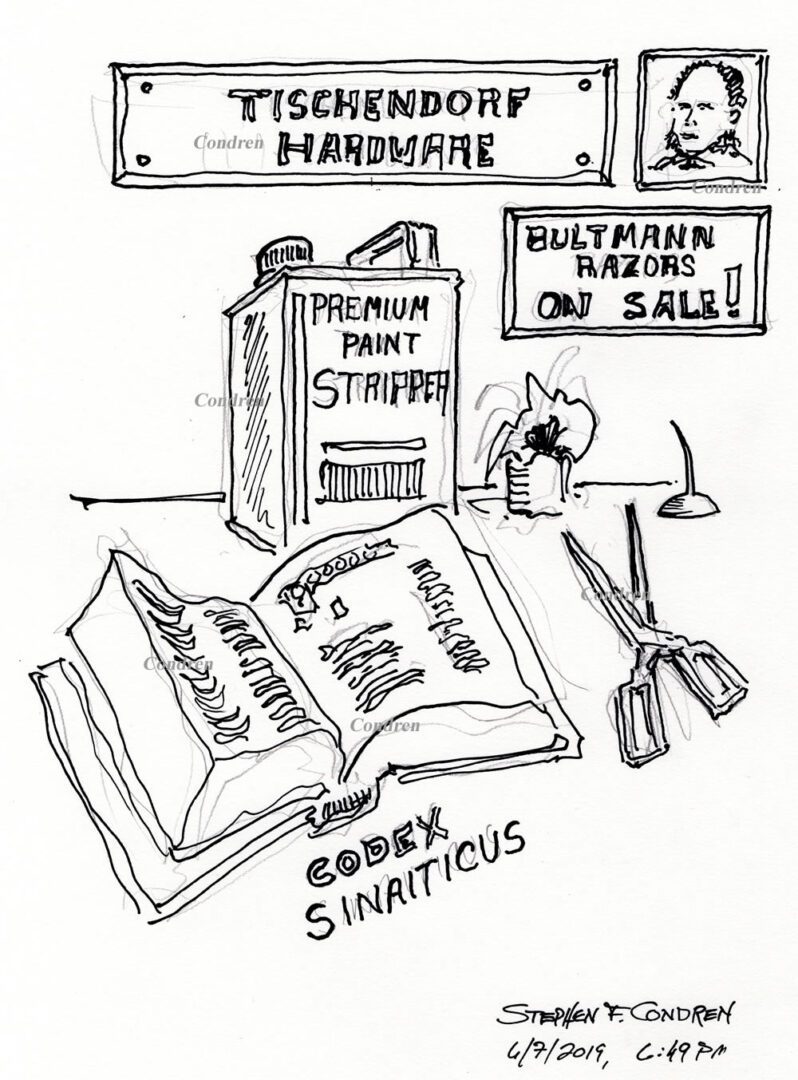 TISCHENDORF
HARDWARE
BULTMANN
RAZORS
ON SALE!
PREMIUM
PAINT
STRIPPER
CODEX
SINAITICUS
STEPHEN F. CONDREN
6/7/2019, 6:49 PM
Condren
Condren
Condren
Condren
Condren
Condren